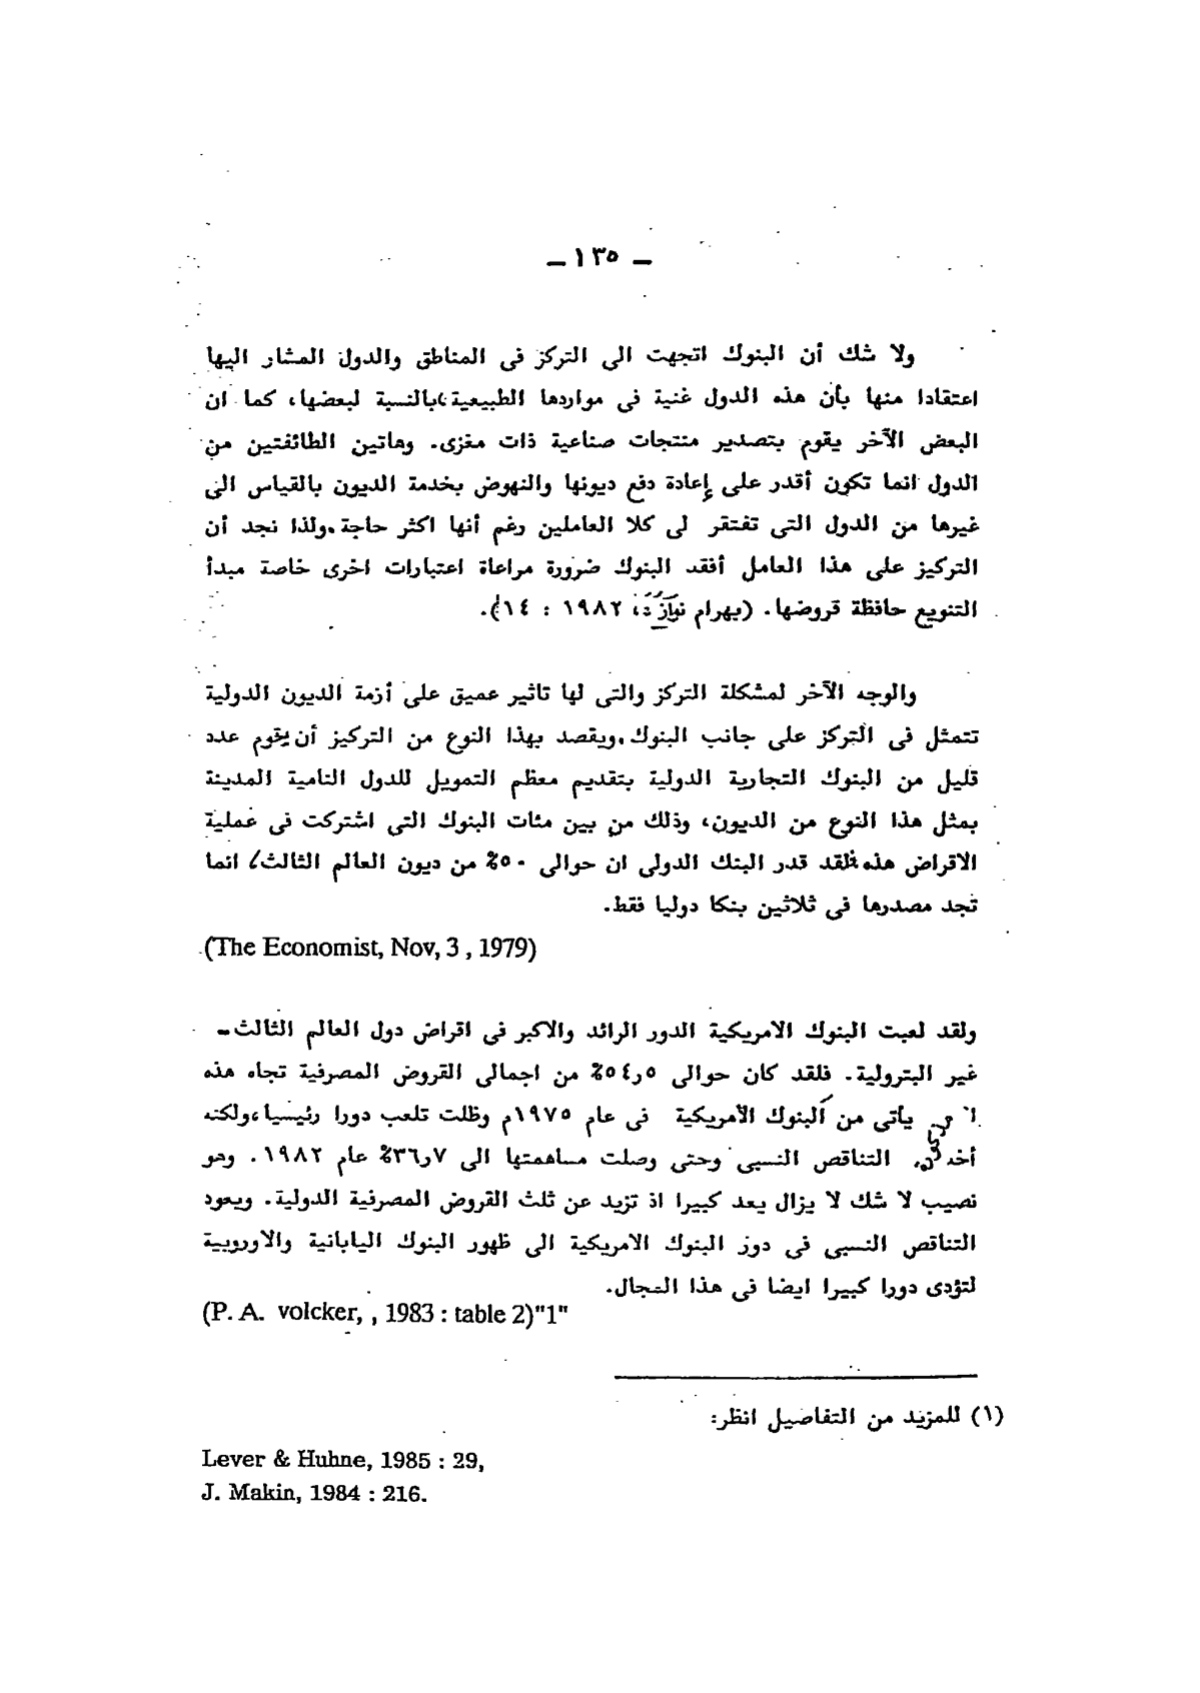 – ١٣٥ –
ولا شك أن البنوك اتجهت الى التركز فى المناطق والدول المشار اليها
اعتقادا منها بأن هذه الدول غنية فى مواردها الطبيعية،بالنسبة لبعضها، كما ان
البعض الآخر يقوم بتصدير منتجات صناعية ذات مغزى. وهاتين الطائفتين من
الدول انما تكون أقدر على إعادة دفع ديونها والنهوض بخدمة الديون بالقياس الى
غيرها من الدول التى تفتقر لى كلا العاملين رغم أنها اكثر حاجة.ولذا نجد أن
التركيز على هذا العامل أفقد البنوك ضرورة مراعاة اعتبارات اخرى خاصة مبدأ
التنويع حافظة قروضها. (بهرام ١٩٨٢ : ١٤).
والوجه الآخر لمشكلة التركز والتى لها تاثير عميق على أزمة الديون الدولية
تتمثل فى التركز على جانب البنوك.ويقصد بهذا النوع من التركيز أن يقوم عدد
قليل من البنوك التجارية الدولية بتقديم معظم التمويل للدول النامية المدينة
بمثل هذا النوع من الديون، وذلك من بين مئات البنوك التى اشتركت فى عملية
الاقراض هذه فلقد قدر البنك الدولى ان حوالى ٥٠٪ من ديون العالم الثالث/ انما
تجد مصدرها فى ثلاثين بنكا دوليا فقط.
(The Economist, Nov, 3 , 1979)
ولقد لعبت البنوك الامريكية الدور الرائد والاكبر فى اقراض دول العالم الثالث–
غير البترولية. فلقد كان حوالى ٥ر٥٤٪ من اجمالى القروض المصرفية تجاه هذه
يأتى من البنوك الأمريكية فى عام ١٩٧٥م وظلت تلعب دورا رئيسيا،ولكنه
أخذ فى التناقص النسبى وحتى وصلت مساهمتها الى ٧ر٣٦٪ عام ١٩٨٢. وهو
نصيب لا شك لا يزال يعد كبيرا اذ تزيد عن ثلث القروض المصرفية الدولية. ويعود
التناقص النسبى فى دور البنوك الامريكية الى ظهور البنوك اليابانية والاوروبية
لتؤدى دورا كبيرا ايضا فى هذا المجال.
(P. A. volcker, , 1983 : table 2)"1"
(١) للمزيد من التفاصيل انظر:
Lever & Huhne, 1985 : 29,
J. Makin, 1984 : 216.